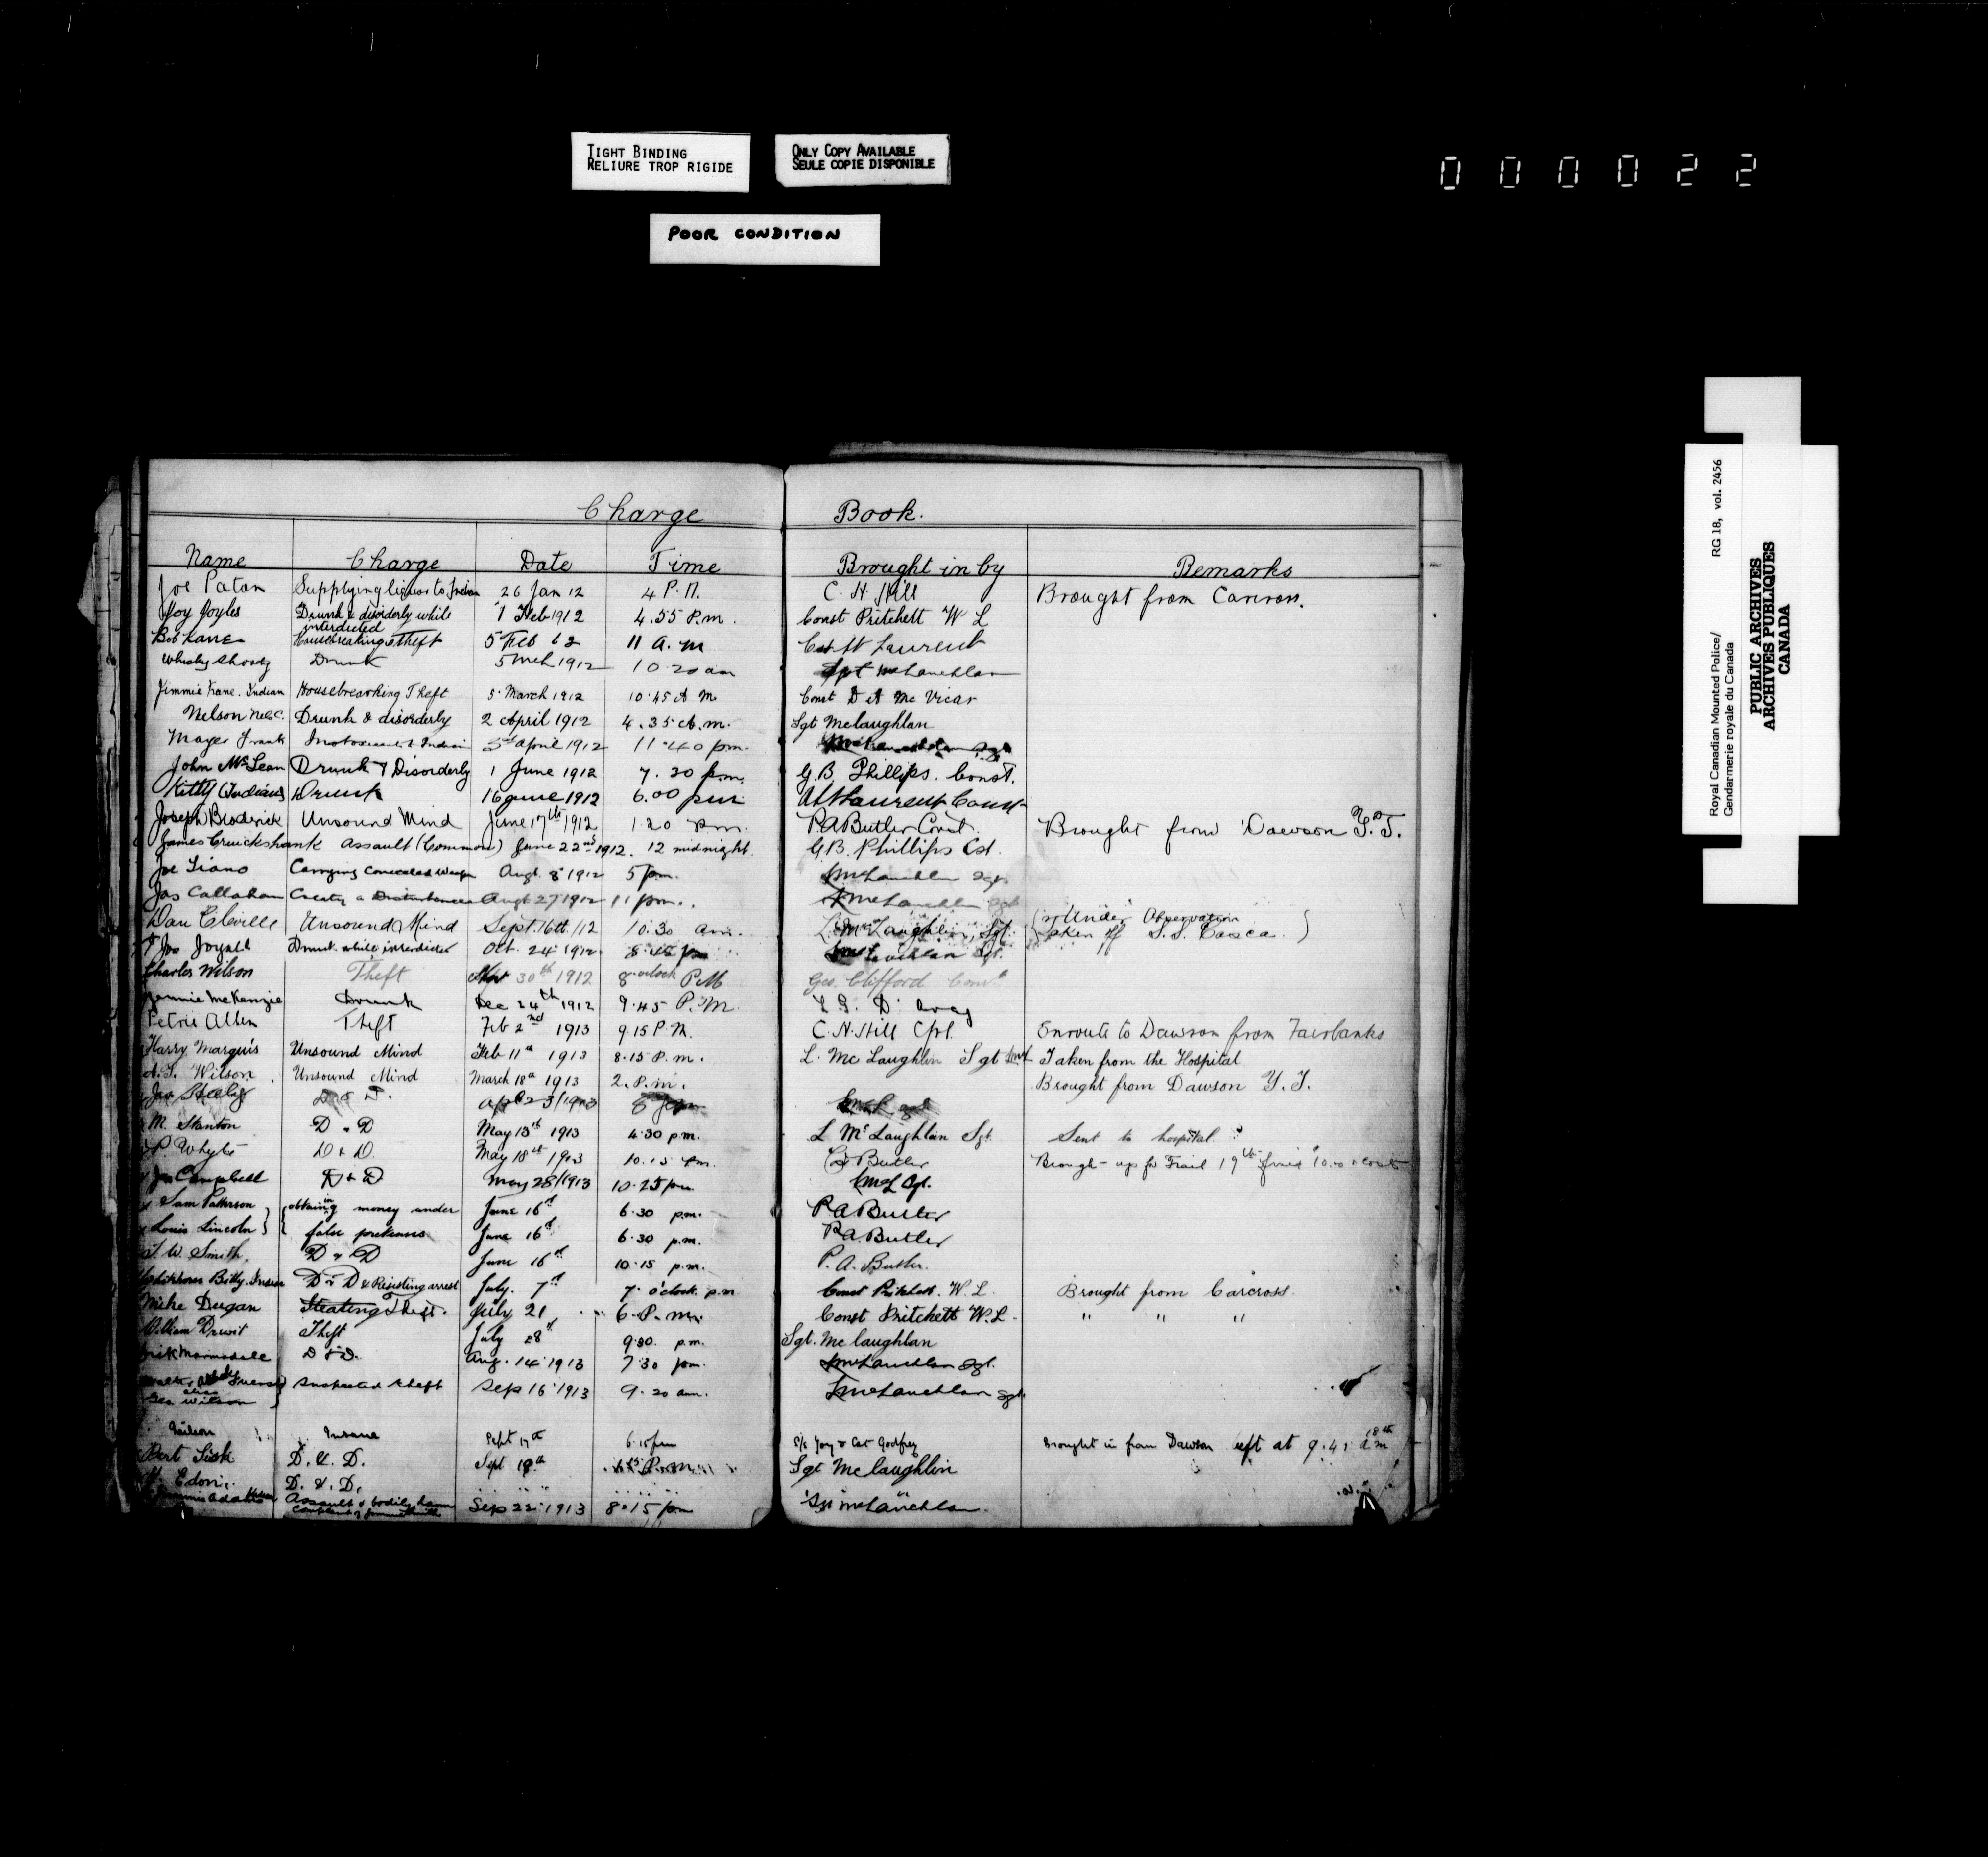 TIGHT BINDING
RELIURE TROP RIGIDE
ONLY COPY AVAILABLE
SEULE COPIE DISPONIBLE
POOR CONDITION
000022
Royal Canadian Mounted Police/
Gendarmerie royale du Canada
RG 18, vol. 2456
PUBLIC ARCHIVES
ARCHIVES PUBLIQUES
CANADA
Charge Book.
Name Charge Date Time Brought in by Remarks
Joe Paton Supplying liquor to Indian 26 Jan 12 4 P.M. C. N. Hill Brought from
Drunk & disorderly while interdicted 1 Feb 1912 4.55 P.m. Const Pritchett W L
Bob Kane Housebreaking & Theft 5 Feb 12 11 A.M Laurent
Whisky Shorty Drunk 5 Mch 1912 10.20 am Sgt McLauchlan
Jimmie Kane. Indian Housebreaking Theft 5 March 1912 10.45 A M Const D A Mc Vicar
Nelson Drunk & disorderly 2 April 1912 4.35 A.m. Sgt Mclaughlan
Mayer Frank Indian 3rd April 1912 11.40 pm.
John McLean Drunk & Disorderly 1 June 1912 7.30 p.m. G.B. Phillips. Const.
Kitty (Indian) Drunk 16 June 1912 6.00 pm Laurent Const
Joseph Broderick Unsound Mind June 17th 1912 1.20 pm. P.A Butler Const. Brought from Dawson Y.T.
James Cruickshank Assault (Common) June 22nd 1912. 12 midnight. G.B. Phillips Cst.
Joe Carrying Concealed Weapon Augt. 8 1912 5 pm. McLauchlan Sgt.
Jas Callahan Creating a Disturbance Augt 27 1912 11 pm. McLauchlan Sgt
Dan Cleville Unsound Mind Sept. 16th /12 10.30 am. L. McLaughlin, Sgt. (Under Observation
taken off S.S. Casca.)
Drunk while interdicted Oct. 24 1912 8.45 pm McLauchlan Sgt.
Charles Wilson Theft 30th 1912 8 oclock P.M Geo. Clifford Const
Jennie McKenzie Drunk Dec 24th 1912 9.45 P.M.
Petrie Allen Theft Feb 2nd 1913 9.15 P.M. C. N. Hill Cpl. Enroute to Dawson from Fairbanks
Harry Marquis Unsound Mind Feb 11th 1913 8.15 P.m. L. McLaughlin Sgt Taken from the Hospital
Wilson Unsound Mind March 18th 1913 2. P.m. Brought from Dawson Y.T.
D & D. Apl 23/1913 8 pm
M. Stanton D & D May 13th 1913 4.30 pm. L McLaughlin Sgt. Sent to hospital
P Whyte D & D. May 18th 1913 10.15 pm. Butler
Jas Campbell D & D May 28/1913 10.25 pm McL Sgt.
Sam Patterson obtaining money under June 16th 6.30 p.m. P A Butler
Louis Lincoln false pretenses June 16th 6.30 p.m. P.A. Butler
W. Smith. D & D June 16th 10.15 p.m. P. A. Butler.
Billy. Indian D & D & Resisting arrest July. 7th 7. o'clock. p.m Const Pritchett. W. L. Brought from Carcross.
Mike Dugan Stealing Theft. July 21 6. P.m. Const Pritchett W.L. " " "
Theft July 28th 9.30. p.m. Sgt. Mc laughlan
D & D. Aug. 14. 1913 7.30 pm. McLauchlan Sgt.
Suspected theft Sep 16. 1913 9.20 am. McLauchlan Sgt.
alias
Geo Wilson
Insane Sept 17th 6.15 pm Godfrey Brought in from Dawson left at 9.45 am 18th
Bert Sisk D. & D. Sept 18th P.m Sgt Mclaughlin
D. & D. " "
Assault & bodily harm Sep 22. 1913 8.15 pm Sgt McLauchlan